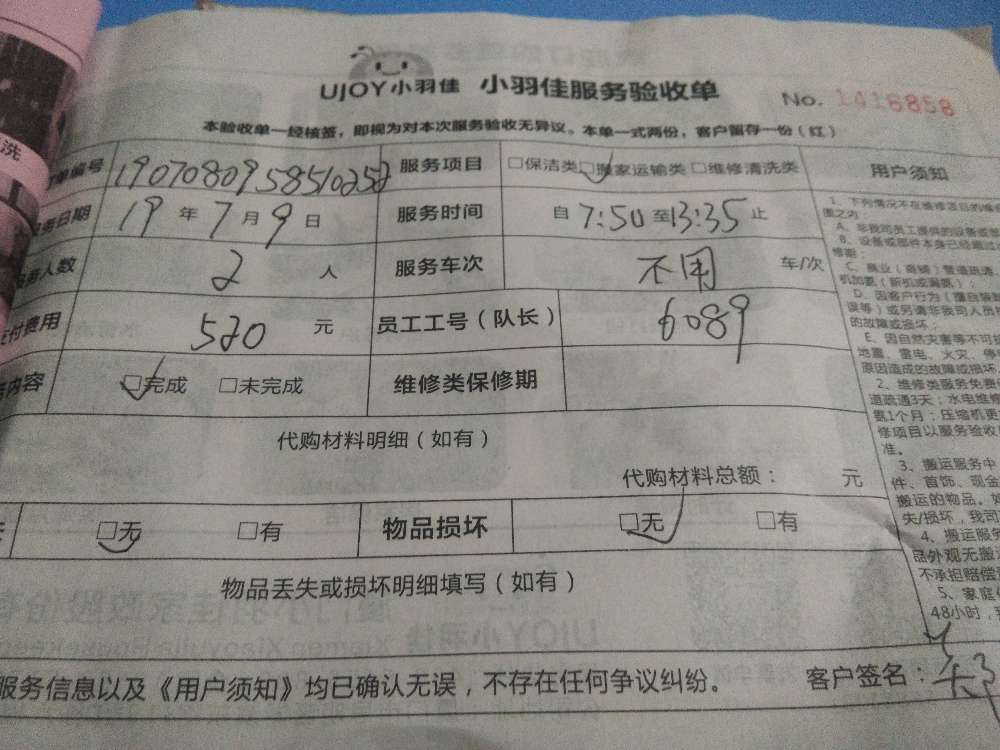 UJOY小羽佳 小羽佳服务验收单 No. 1416858
本验收单一经核签，即视为对本次服务验收无异议。本单一式两份，客户留存一份（红）
洗
单编号 190708095851025 服务项目 □保洁类 □搬家运输类 □维修清洗类 用户须知
务日期 19年7月9日 服务时间 自7:50至13:35止
务人数 2 人 服务车次 不用 车/次
付费用 520 元 员工工号（队长） 6089
内容 □完成 □未完成 维修类保修期
代购材料明细（如有）
代购材料总额： 元
□无 □有 物品损坏 □无 □有
物品丢失或损坏明细填写（如有）
服务信息以及《用户须知》均已确认无误，不存在任何争议纠纷。 客户签名：
1、下列情况不在维修项目的维
围之内
A、非我司员工提供的设备或
B、设备或部件本身已经超过
修期；
C、商业（商铺）管道疏通、
机加氨（新机或漏氨）；
D、因客户行为（擅自装
误等）或另请非我司人员
的故障或损坏；
E、因自然灾害等不可抗
地震、雷电、火灾、停
原因造成的故障或损坏。
2、维修类服务免费
道疏通3天；水电维修
氨1个月；压缩机更
修项目以服务验收
准。
3、搬运服务中
件、首饰、现金
搬运的物品。如
失/损坏，我司
4、搬运服务
品外观无搬
不承担赔偿
5、家庭
48小时，